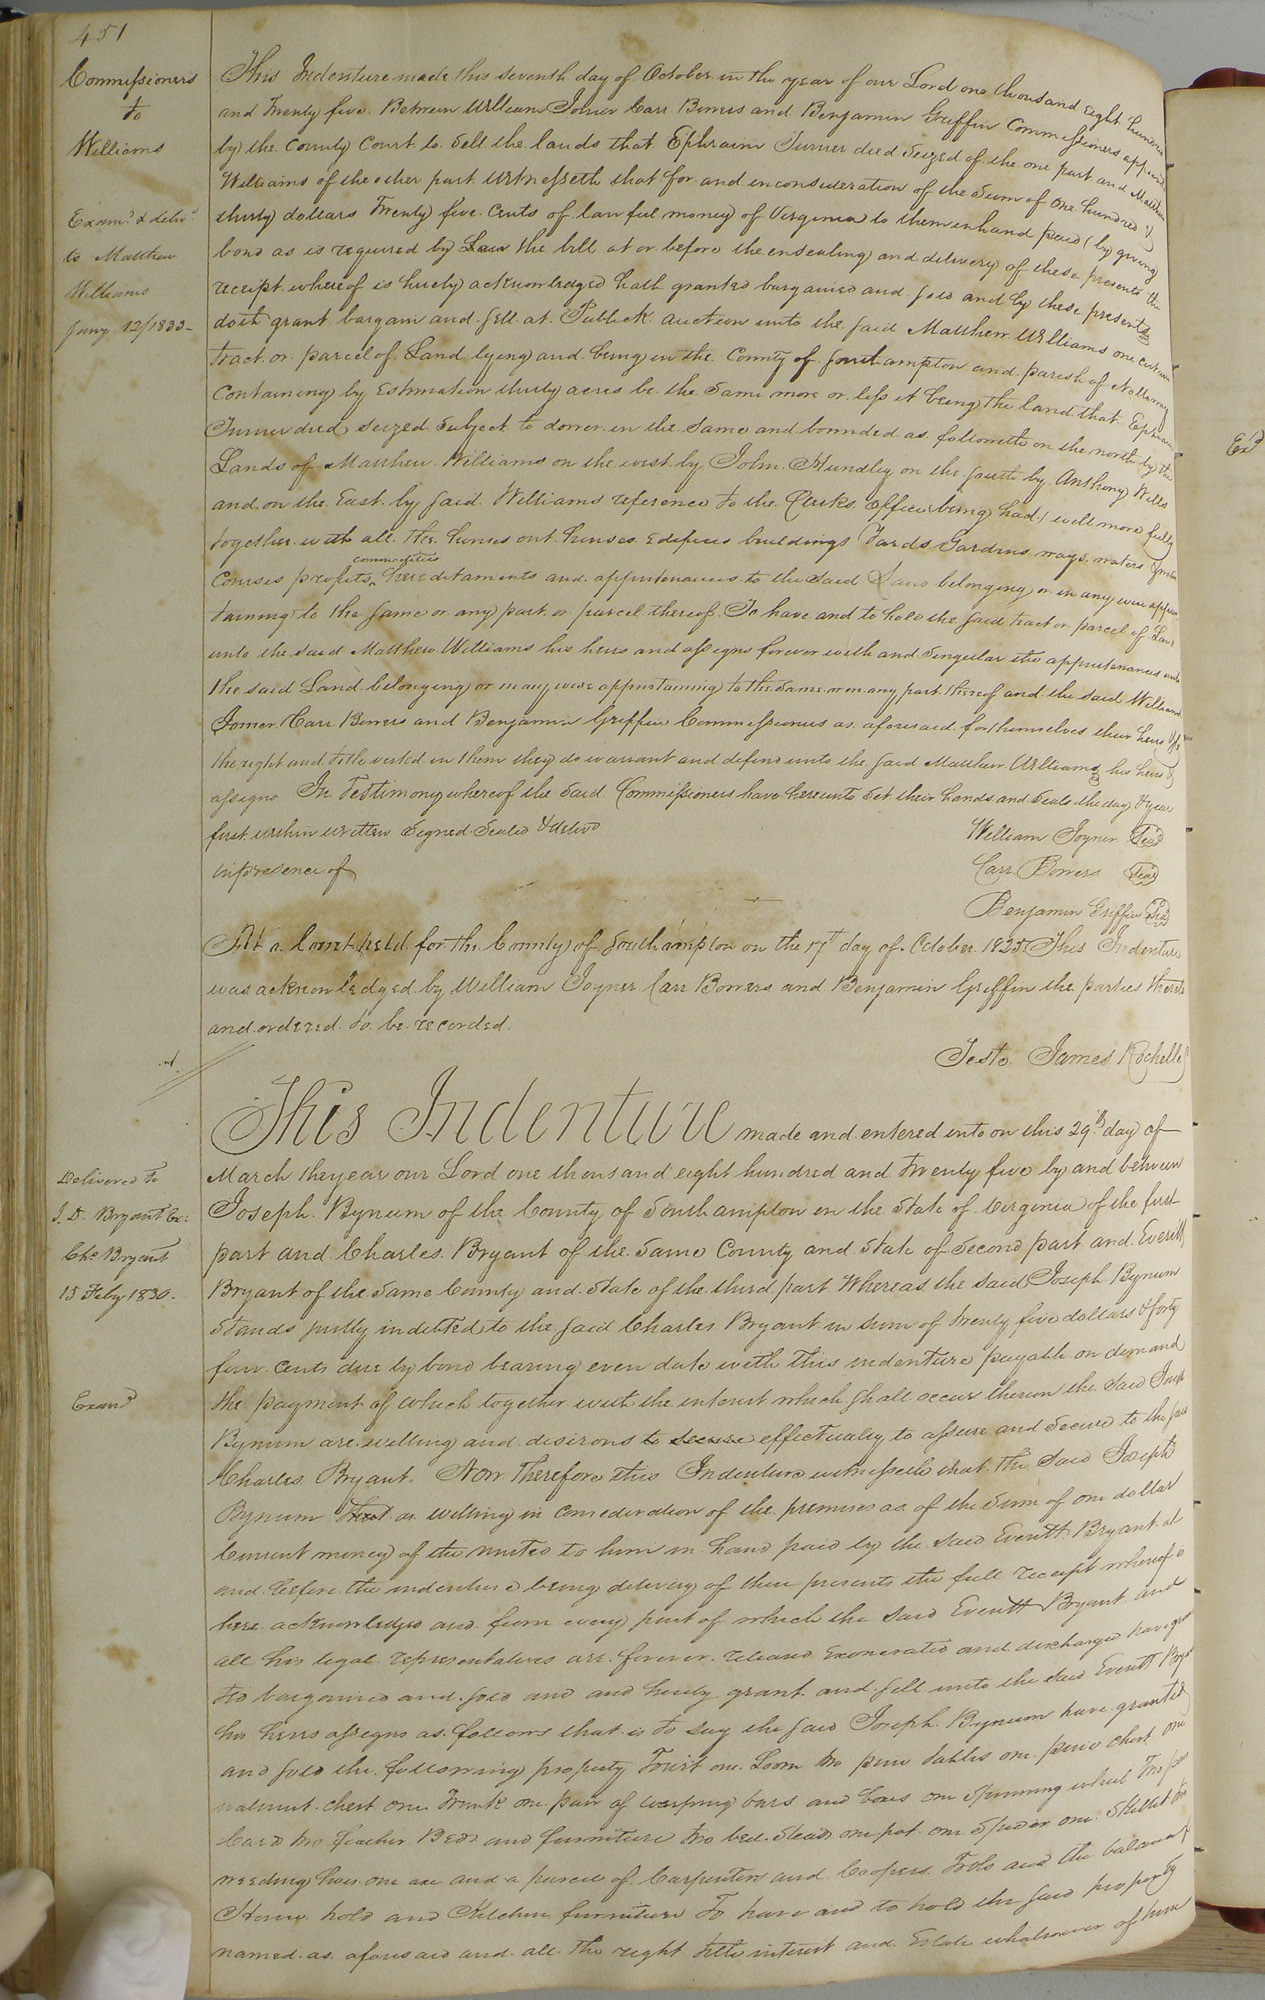 451
Commissioners
to
Williams
Exam.d & deliv.d
to Matthew
Williams
Jany. 12/1833-
This Indenture made this seventh day of October in the year of our Lord one thousand eight hundred
and Twenty five Between William Joiner Carr Bowers and Benjamin Griffin Commissioners appointed
by the County Court to Sell the lands that Ephraim Turner died Seized of the one part and Matthew
Williams of the other part Witnesseth that for and in consideration of the Sum of One hundred &
thirty dollars Twenty five Cents of lawful money of Virginia to them in hand paid (by giving
bond as is required by Law the bill at or before the ensealing and delivery of these presents the
receipt whereof is hereby acknowledged hath granted bargained and sold and by these presents
doth grant bargain and sell at Publick auction unto the said Matthew Williams one certain
tract or parcel of Land lying and being in the County of Southampton and parish of Nottoway
Containing by Estimation thirty acres be the Same more or less it being the land that Ephraim
Turner died seized Subject to dower in the Same and bounded as followeth on the north by the
Lands of Matthew Williams on the west by John Hundley on the south by Anthony Wells
and on the East by said Williams reference to the Clerks Office (being had) will more fully
together with all the houses out houses Edifices buildings Yards Gardens ways waters
Courses profits commodities hereditaments and appurtenances to the Said Land belonging or in any wise apper
taining to the same or any part or parcel thereof To have and to hold the said tract or parcel of Land
unto the said Matthew Williams his heirs and assigns forever with and Singular the appurtenances unto
the said Land belonging or in any wise appurtaining to the Same or in any part thereof and the said William
Joiner Carr Bowers and Benjamin Griffin Commissioners as aforesaid for themselves their heirs
the right and title vested in them they do warrant and defend unto the said Matthew Williams his heirs &
assigns In Testimony whereof the Said Commissioners have hereunto Set their hands and Seals the day & year
first within written Signed Sealed & deliv.d
in presence of
William Joyner Seal
Carr Bowers Seal
Benjamin Griffin Seal
At a Court held for the County of Southampton on the 17th day of October 1825 This Indenture
was acknowledged by William Joyner Carr Bowers and Benjamin Griffin the parties thereto
and ordered to be recorded.
Teste. James Rochelle
Delivered to
J. D. Bryant Ex:
Chs Bryant
15 Feby 1830.
Examd
This Indenture made and entered into on this 29th day of
March the year our Lord one thousand eight hundred and twenty five by and between
Joseph Bynum of the County of Southampton in the State of Virginia of the first
part and Charles Bryant of the Same County and State of Second part and Everitt
Bryant of the Same County and State of the third part Whereas the said Joseph Bynum
Stands justly indebted to the said Charles Bryant in sum of twenty five dollars & forty
four cents due by bond bearing even date with this indenture payable on demand
the payment of which together with the interest which shall occur thereon the Said Joseph
Bynum are willing and desirous to secure effectualey to assure and Secure to the said
Charles Bryant. Now Therefore this Indenture witnesseth that the Said Joseph
Bynum as willing in consideration of the premises as of the Sum of one dollar
Current money of the united to him in hand paid by the Said Everitt Bryant at
and before the indenture being delivery of these presents the full receipt whereof is
here acknowledged and from every part of which the Said Everitt Bryant and
all his legal representatives are forever releasd Exonerated and discharged have gran
ted bargained and sold and and hereby grant and sell unto the Said Everitt Bryant
his heirs assigns as follows that is to say the said Joseph Bynum have granted
and sold the following property Towit one Loom two pine tables one pine chest one
walnut chest one Trunk one pair of warping bars and boxes one Spinning wheel Two pair
Cards two feather Beds and furniture two bed Steads one pot one Spider one Skillet two
weeding hoes one axe and a parcel of Carpenters and Coopers Tools and the balance of
House hold and Kitchen furniture To have and to hold the said property
named as aforesaid and all the right title interest and Estate whatsoever of him
Exd